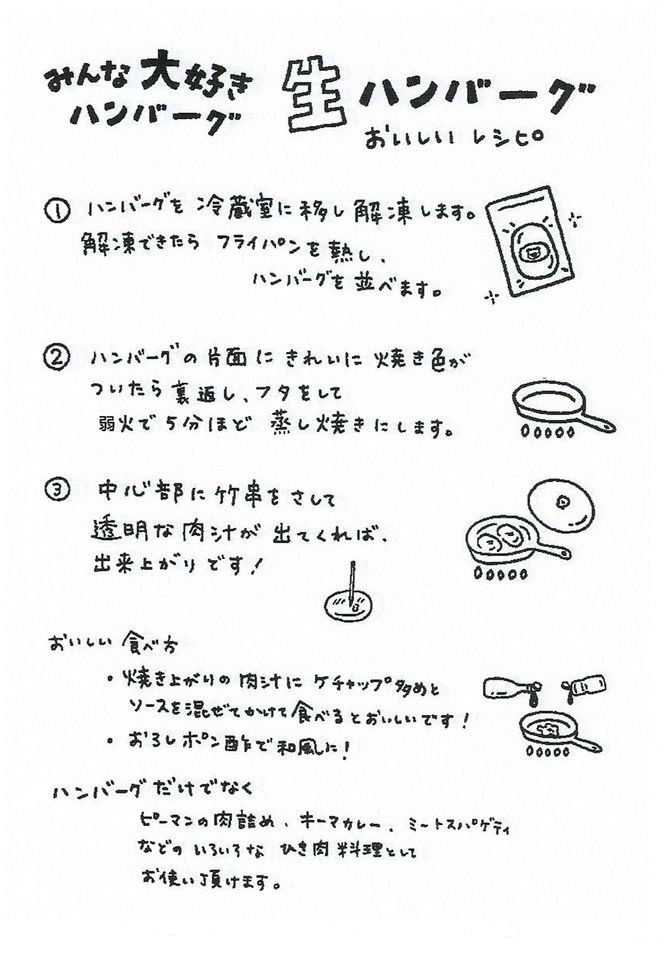 みんな大好き
ハンバーグ
生ハンバーグ
おいしいレシピ
① ハンバーグを冷蔵室に移し解凍します。
解凍できたらフライパンを熱し、
ハンバーグを並べます。
② ハンバーグの片面にきれいに焼き色が
ついたら裏返し、フタをして
弱火で5分ほど蒸し焼きにします。
③ 中心部に竹串をさして
透明な肉汁が出てくれば、
出来上がりです!
おいしい食べ方
・焼き上がりの肉汁にケチャップ多めと
ソースを混ぜてかけて食べるとおいしいです!
・おろしポン酢で和風に!
ハンバーグだけでなく
ピーマンの肉詰め、キーマカレー、ミートスパゲティ
などのいろいろなひき肉料理として
お使い頂けます。